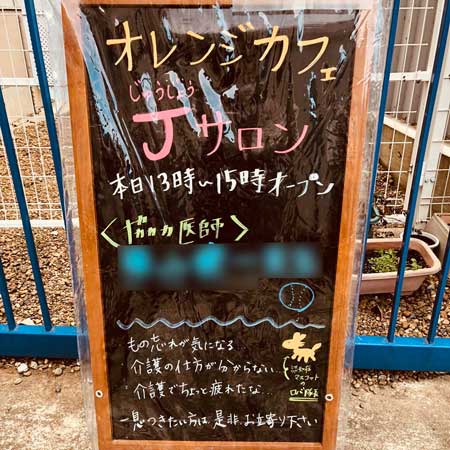 オレンジカフェ
じゅうじゅう
Jサロン
本日13時〜15時オープン
医師
もの忘れが気になる
介護の仕方が分からない…
介護でちょっと疲れたな…
一息つきたい方は、是非、お立寄り下さい
マスコットの
ロバ隊長